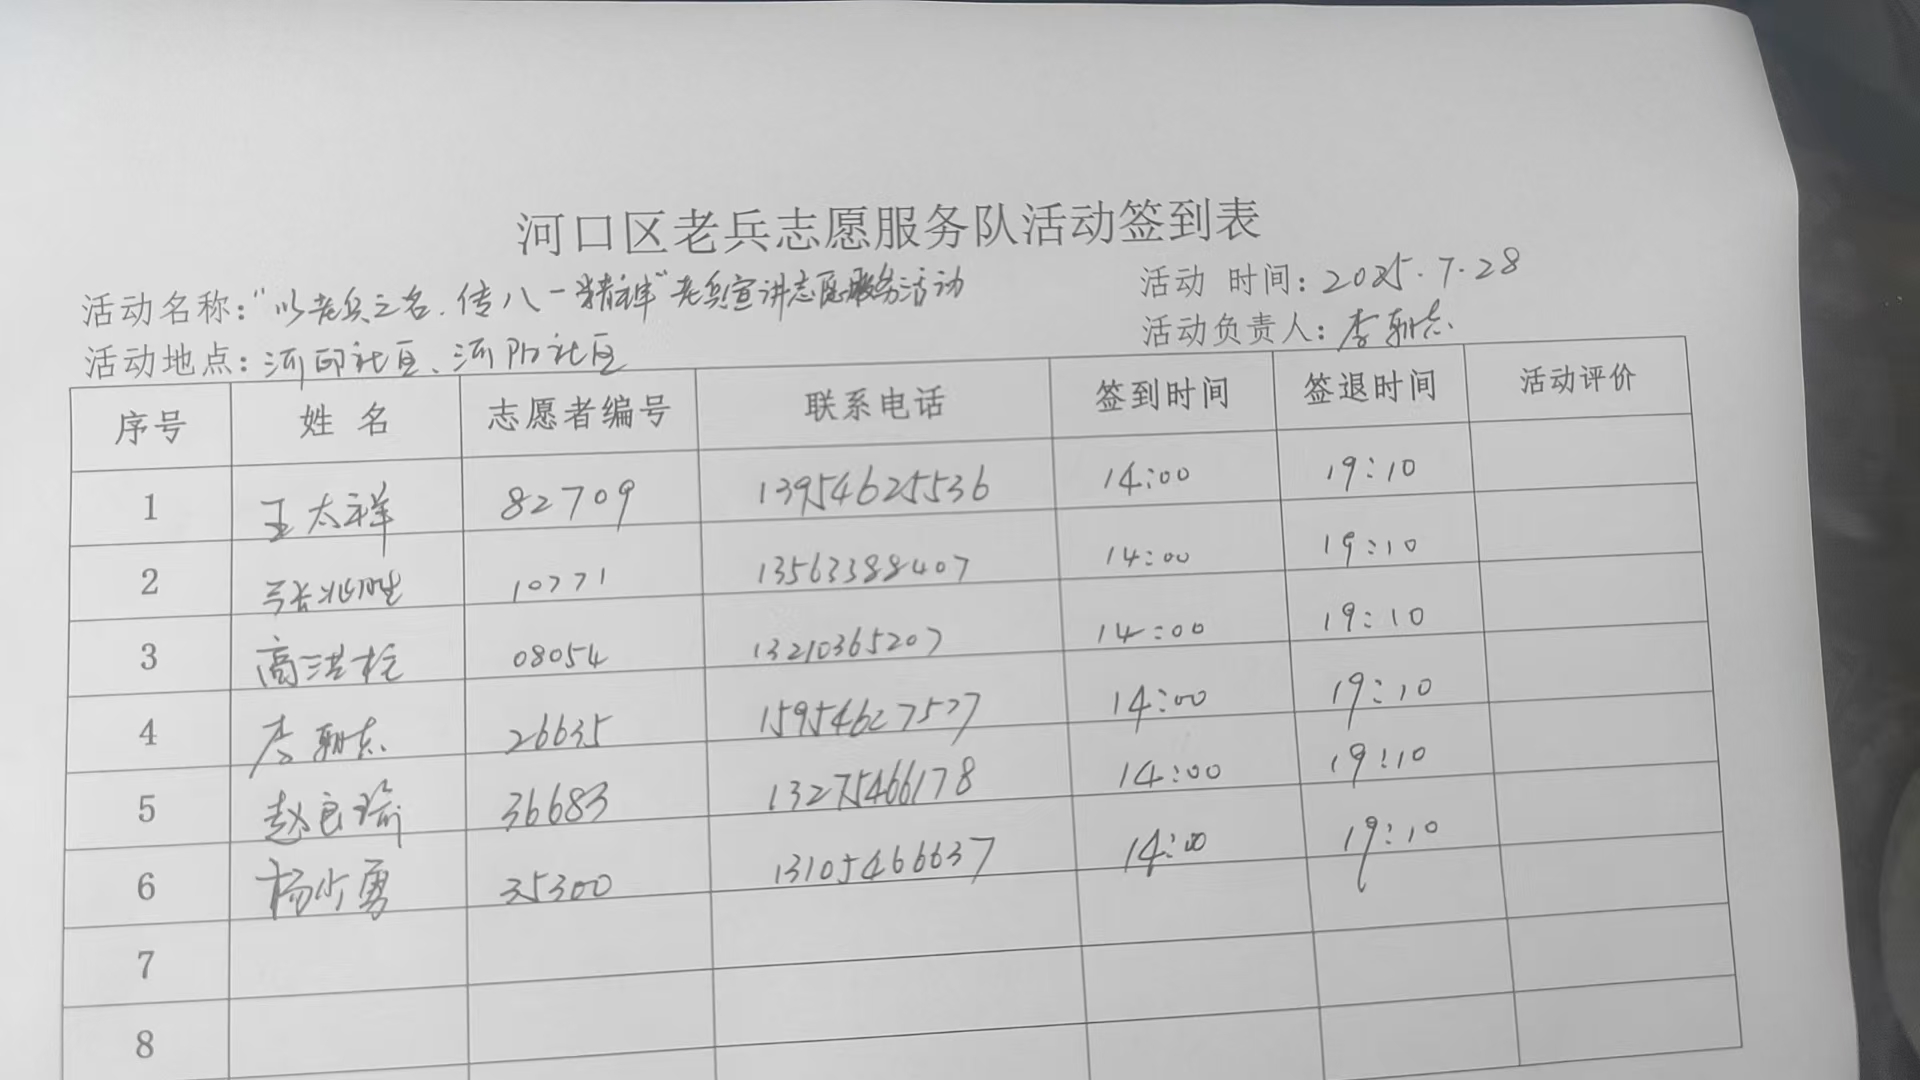 河口区老兵志愿服务队活动签到表
活动名称："以老兵之名.传八一精神"老兵宣讲志愿服务活动
活动时间：2025.7.28
活动地点：河 社区、河 社区
活动负责人：李朝志
序号 姓名 志愿者编号 联系电话 签到时间 签退时间 活动评价
1 王太祥 82709 13954625536 14:00 19:10
2 张兆胜 10771 13563388407 14:00 19:10
3 高洪 08054 13210365207 14:00 19:10
4 李朝志 26635 15954627527 14:00 19:10
5 赵良瑜 36683 13275466178 14:00 19:10
6 杨少勇 35300 13105466637 14:00 19:10
7
8